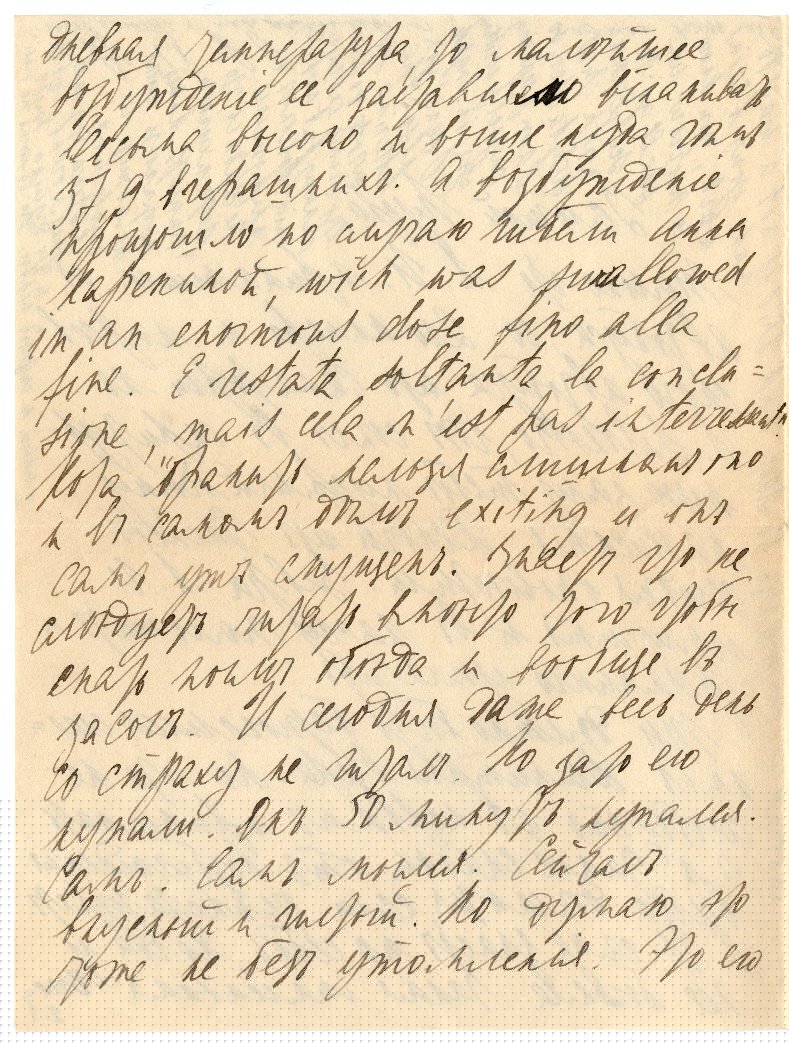 дневная температура, то малѣйшее
возбужденіе ее заставило вскакивать
весьма высоко и выше нуда
37,9 вчерашнихъ. А возбужденіе
произошло по случаю гибели Анны
Карениной, wich was swallowed
in an enormous dose fino alla
fine. E restata soltanto la conclu=
sione, mais cela n'est pas interressant.
Кора
и въ самомъ дѣлѣ exiting и онъ
самъ ужъ смущенъ. Знаетъ что не
слѣдуетъ читать вмѣсто того чтобы
спать послѣ обѣда и вообще въ
засосъ. И сегодня даже весь день
со страху не читалъ. Но зато его
купали. Онъ 50 минутъ купался.
Самъ. Самъ мылся. Сейчасъ
вкусный и чистый. Но думаю это
тоже не безъ утомленія. Это его